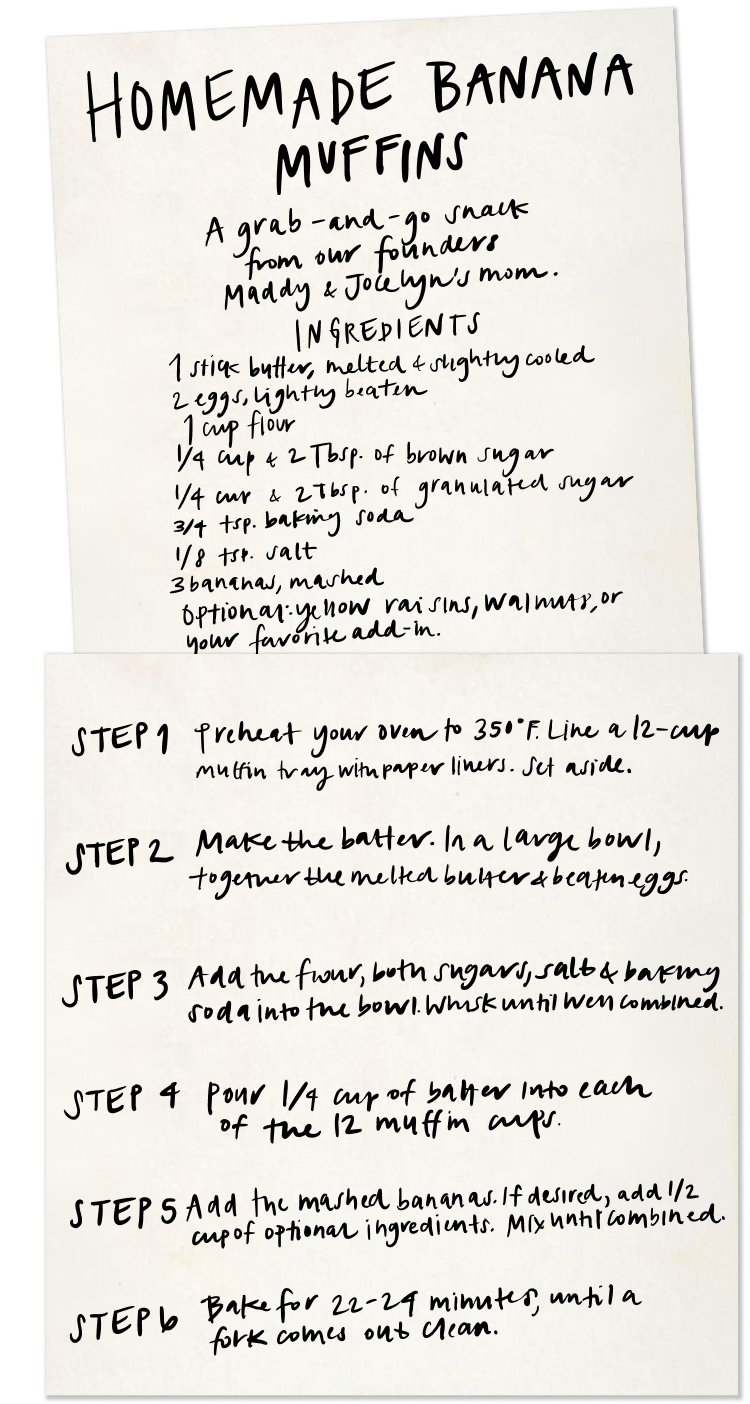 HOMEMADE BANANA
MUFFINS
A grab-and-go snack
from our founders
Maddy & Jocelyn's mom.
INGREDIENTS
1 stick butter, melted & slightly cooled
2 eggs, lightly beaten
1 cup flour
1/4 cup & 2 Tbsp. of brown sugar
1/4 cup & 2 Tbsp. of granulated sugar
3/4 tsp. baking soda
1/8 tsp. salt
3 bananas, mashed
Optional: yellow raisins, walnuts, or
your favorite add-in.
STEP 1 Preheat your oven to 350°F. Line a 12-cup
muffin tray with paper liners. Set aside.
STEP 2 Make the batter. In a large bowl,
together the melted butter & beaten eggs.
STEP 3 Add the flour, both sugars, salt & baking
soda into the bowl. Whisk until well combined.
STEP 4 Pour 1/4 cup of batter into each
of the 12 muffin cups.
STEP 5 Add the mashed bananas. If desired, add 1/2
cup of optional ingredients. Mix until combined.
STEP 6 Bake for 22-24 minutes, until a
fork comes out clean.